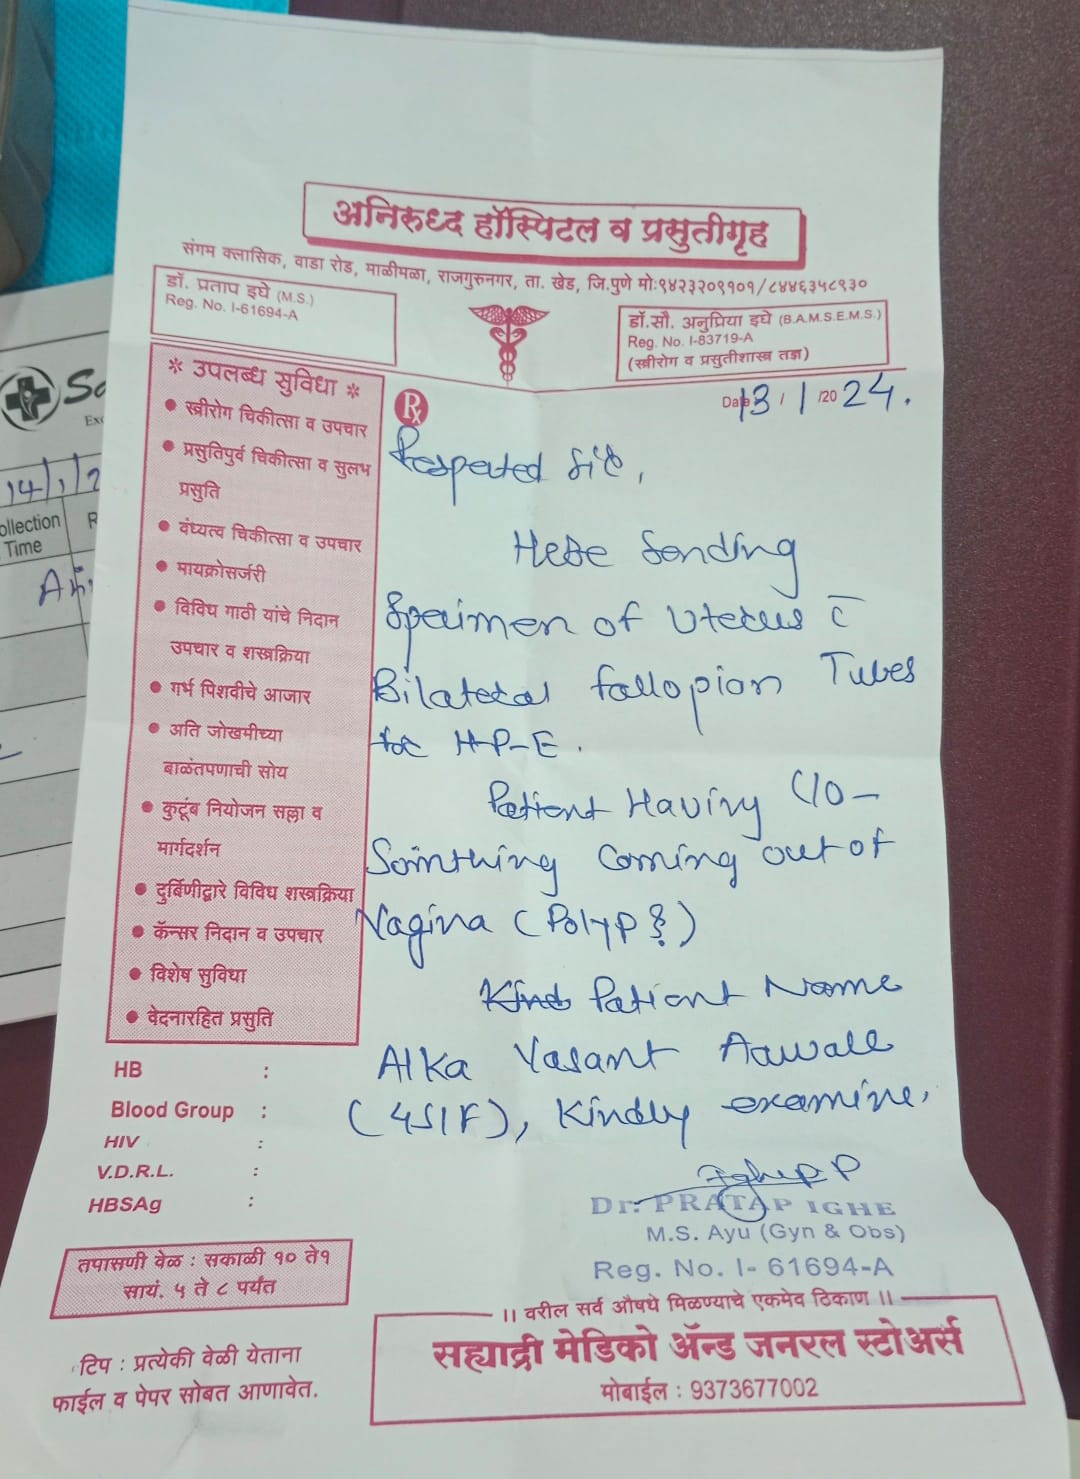 अनिरुध्द हॉस्पिटल व प्रसुतीगृह
संगम क्लासिक, वाडा रोड, माळीमळा, राजगुरुनगर, ता. खेड, जि.पुणे मो:९४२३२०९१०१/८४४६३५८९३०
डॉ. प्रताप इघे (M.S.)
Reg. No. I-61694-A
डॉ.सौ. अनुप्रिया इघे (B.A.M.S.E.M.S.)
Reg. No. I-83719-A
(स्त्रीरोग व प्रसुतीशास्त्र तज्ञ)
* उपलब्ध सुविधा *
• स्त्रीरोग चिकीत्सा व उपचार
• प्रसुतिपुर्व चिकीत्सा व सुलभ
प्रसुति
• वंध्यत्व चिकीत्सा व उपचार
• मायक्रोसर्जरी
• विविध गाठी यांचे निदान
उपचार व शस्त्रक्रिया
• गर्भ पिशवीचे आजार
• अति जोखमीच्या
बाळंतपणाची सोय
• कुटूंब नियोजन सल्ला व
मार्गदर्शन
• दुर्बिणीद्वारे विविध शस्त्रक्रिया
• कॅन्सर निदान व उपचार
• विशेष सुविधा
• वेदनारहित प्रसुति
HB :
Blood Group :
HIV :
V.D.R.L. :
HBSAg :
तपासणी वेळ : सकाळी १० ते१
सायं. ५ ते ८ पर्यंत
टिप : प्रत्येकी वेळी येताना
फाईल व पेपर सोबत आणावेत.
Rx
Date 13 / 1 /2024.
Respected Sir,
Here Sending
Speimen of Uterus c̄
Bilateral fallopian Tubes
for H-P-E.
Patient Having C/O-
Somthing coming out of
Vagina (Polyp?)
Kind Patient Name
Alka Vasant Aawale
(45/F), Kindly examine.
Dr. PRATAP IGHE
M.S. Ayu (Gyn & Obs)
Reg. No. I- 61694-A
।। वरील सर्व औषधे मिळण्याचे एकमेव ठिकाण ।।
सह्याद्री मेडिको ॲन्ड जनरल स्टोअर्स
मोबाईल : 9373677002
14/1/2
ollection
Time